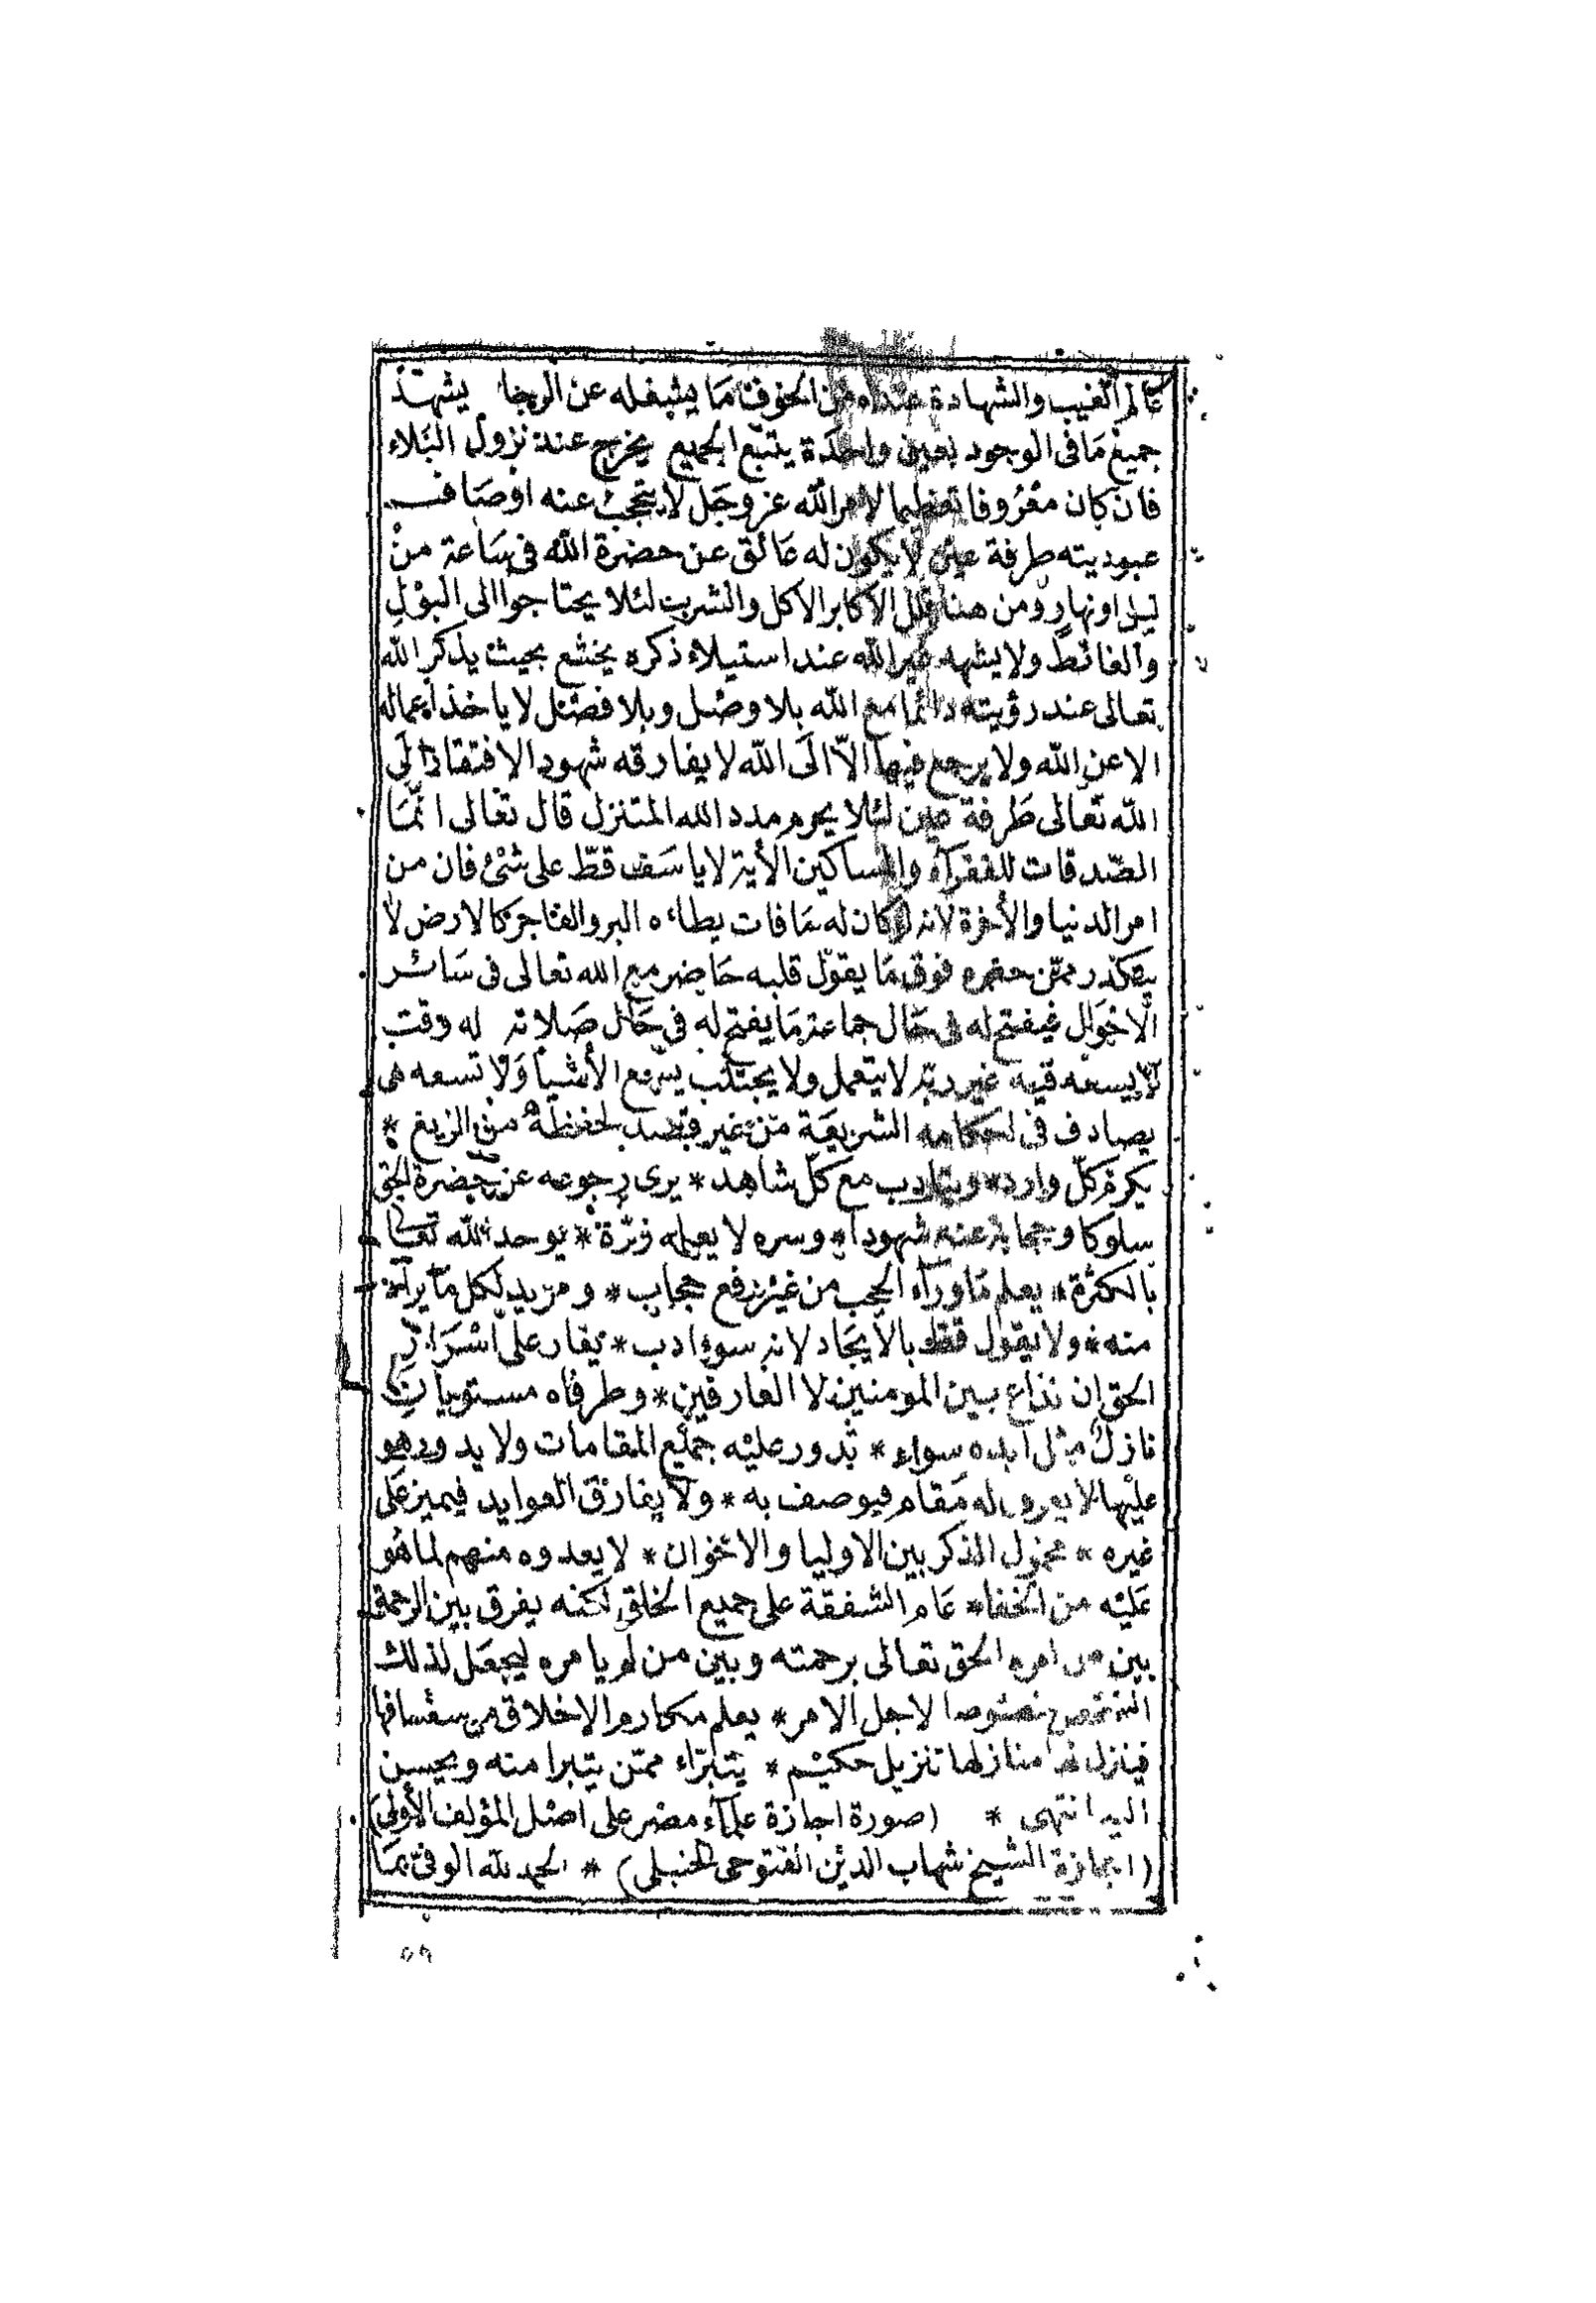 عالم الغيب والشهادة عنده من الخوف ما يشغله عن الرجا يشهد
جميع ما فى الوجود بعين واحدة يتبع الجميع يخرج عند نزول البلاء
فان كان معروفا تعظيما لامر الله عز وجل لا يحجب عنه اوصاف
عبوديته طرفة عين لا يكون له عائق عن حضرة الله فى ساعة من
ليل او نهار ومن هنا قلل الاكابر الاكل والشرب لئلا يحتاجوا الى البول
والغائط ولا يشهد غير الله عند استيلاء ذكره يخشع بحيث يذكر الله
تعالى عند رؤيته دائما مع الله بلا وصل وبلا فصل لا ياخذ اعماله
الا عن الله ولا يرجع فيها الا الى الله لا يفارقه شهود الافتقار الى
الله تعالى طرفة عين لئلا يحرم مدد الله المتنزل قال تعالى انما
الصدقات للفقرآء والمساكين الأية لا ياسف قط على شئ فان من
امر الدنيا والأخرة لانه لو كان له ما فات يطاءه البر والفاجر كالارض لا
يتكدر ممن حضره فوق ما يقول قلبه حاضر مع الله تعالى فى سائر
الاحوال فيفتح له فى حال جماعة ما يفتح له فى حال صلاته له وقت
لا يسعه فيه غير ربه لا يتعمل ولا يجتلب يسع الأشيا ولا تسعه هى
يصادف فى احكامه الشريعة من غير قصد لحفظه من الزيغ *
يكرم كل وارد * ويتادب مع كل شاهد * يرى رجوعه عن حضرة الحق
سلوكا وحجابه عنه شهودا وسره لا يعلمه زره * يوحد الله تعا
بالكثرة * يعلم ما ورآء الحجب من غير رفع حجاب * ومزيد لكل ما يراه
منه * ولا يقول قط بالايجاد لانه سوء ادب * يغار على اسرار
الحق ان تذاع بين المومنين لا العارفين * وطرفاه مستويان
نازل مثل ابده سواء * تدور عليه جميع المقامات ولا يدور هو
عليها لا يعرف له مقام فيوصف به * ولا يفارق العوايد فيميز على
غيره * مخمول الذكر بين الاوليا والاخوان * لا يعدوه منهم لما هو
عليه من الخفا * عام الشفقة على جميع الخلق لكنه يفرق بين الرحمة
بين من امره الحق تعالى برحمته وبين من لم يامره ليجعل لذلك
الشخص خصوصا لاجل الامر * يعلم مكارم الاخلاق من سفسافها
فينزل لها منازلها تنزيل حكيم * يتبراء ممن يتبرا منه ويحسن
اليه انتهى * (صورة اجازة علمآء مصر على اصل المؤلف الأولى)
(اجازة الشيخ شهاب الدين الفتوحى الحنبلى) * الحمد لله الوفى بما
٥٦